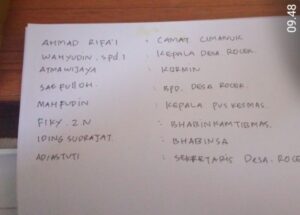 AHMAD RIFA'I : CAMAT CIMANUK
WAHYUDIN. SPd.I : KEPALA DESA. ROCEK
ATMAWIJAYA : KORMIN
SAEFULOH : BPD. DESA ROCEK.
MAHFUDIN : KEPALA PUSKESMAS.
FIKY. Z.N : BHABINKAMTIBMAS
IDING SUDRAJAT. : BHABINSA
ADIASTUTI : SEKRETARIS DESA. ROCE
09.48